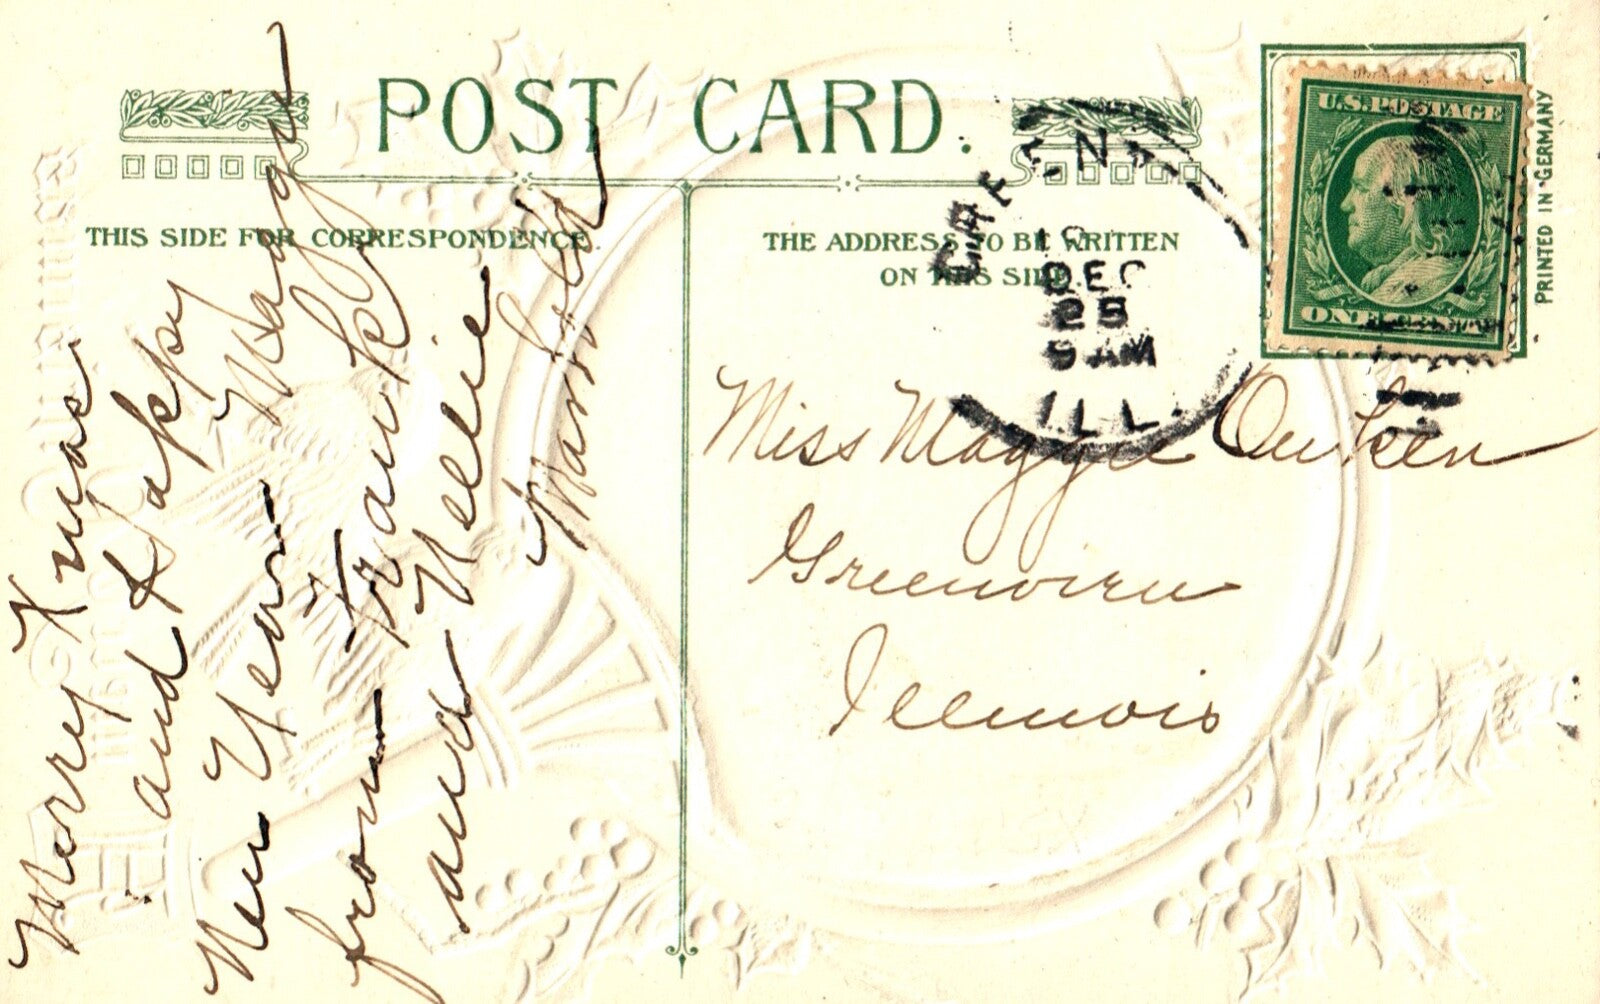 POST CARD.
THIS SIDE FOR CORRESPONDENCE.
THE ADDRESS TO BE WRITTEN
ON THIS SIDE.
U.S. POSTAGE
ONE CENT
PRINTED IN GERMANY
DEC
9 AM
ILL.
Merry Xmas
and Happy
New Year Maggie
from Frank
and Nellie
Miss Maggie
Illinois